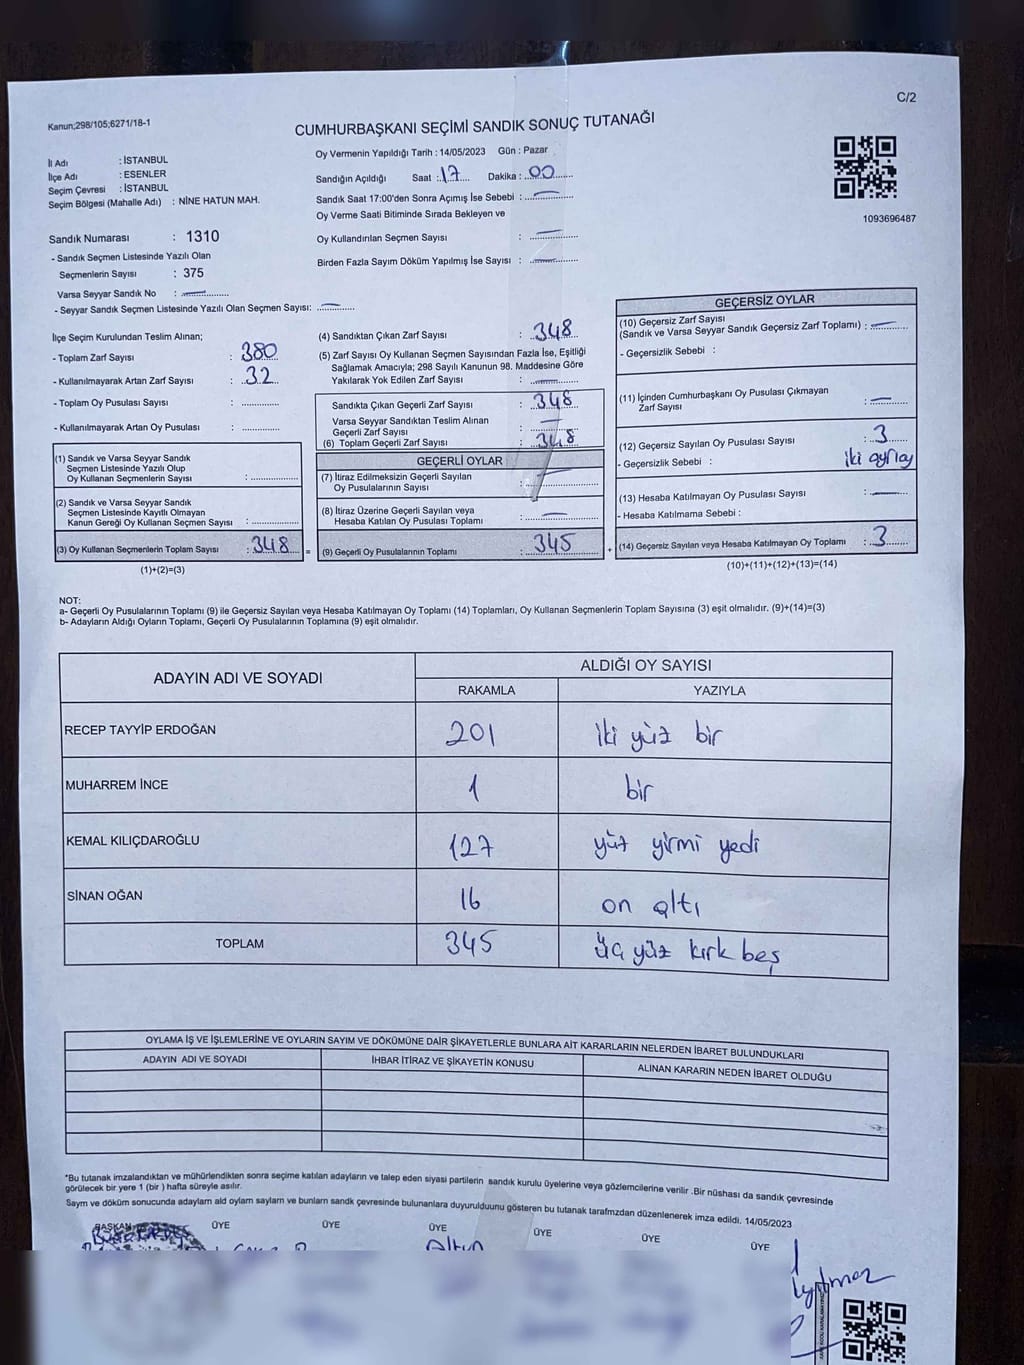 C/2
Kanun;298/105;6271/18-1
CUMHURBAŞKANI SEÇİMİ SANDIK SONUÇ TUTANAĞI
İl Adı : İSTANBUL
İlçe Adı : ESENLER
Seçim Çevresi : İSTANBUL
Seçim Bölgesi (Mahalle Adı) : NİNE HATUN MAH.
Oy Vermenin Yapıldığı Tarih : 14/05/2023 Gün : Pazar
Sandığın Açıldığı Saat : 17 Dakika : 00
Sandık Saat 17:00'den Sonra Açımış İse Sebebi :
Oy Verme Saati Bitiminde Sırada Bekleyen ve
Oy Kullandırılan Seçmen Sayısı :
Birden Fazla Sayım Döküm Yapılmış İse Sayısı :
1093696487
Sandık Numarası : 1310
- Sandık Seçmen Listesinde Yazılı Olan
Seçmenlerin Sayısı : 375
Varsa Seyyar Sandık No :
- Seyyar Sandık Seçmen Listesinde Yazılı Olan Seçmen Sayısı:
İlçe Seçim Kurulundan Teslim Alınan;
- Toplam Zarf Sayısı : 380
- Kullanılmayarak Artan Zarf Sayısı : 32
- Toplam Oy Pusulası Sayısı :
- Kullanılmayarak Artan Oy Pusulası :
(1) Sandık ve Varsa Seyyar Sandık
Seçmen Listesinde Yazılı Olup
Oy Kullanan Seçmenlerin Sayısı :
(2) Sandık ve Varsa Seyyar Sandık
Seçmen Listesinde Kayıtlı Olmayan
Kanun Gereği Oy Kullanan Seçmen Sayısı :
(3) Oy Kullanan Seçmenlerin Toplam Sayısı : 348 =
(1)+(2)=(3)
(4) Sandıktan Çıkan Zarf Sayısı : 348
(5) Zarf Sayısı Oy Kullanan Seçmen Sayısından Fazla İse, Eşitliği
Sağlamak Amacıyla; 298 Sayılı Kanunun 98. Maddesine Göre
Yakılarak Yok Edilen Zarf Sayısı :
Sandıkta Çıkan Geçerli Zarf Sayısı : 348
Varsa Seyyar Sandıktan Teslim Alınan
Geçerli Zarf Sayısı :
(6) Toplam Geçerli Zarf Sayısı : 348
GEÇERLİ OYLAR
(7) İtiraz Edilmeksizin Geçerli Sayılan
Oy Pusulalarının Sayısı :
(8) İtiraz Üzerine Geçerli Sayılan veya
Hesaba Katılan Oy Pusulası Toplamı :
(9) Geçerli Oy Pusulalarının Toplamı : 345 +
GEÇERSİZ OYLAR
(10) Geçersiz Zarf Sayısı
(Sandık ve Varsa Seyyar Sandık Geçersiz Zarf Toplamı) :
- Geçersizlik Sebebi :
(11) İçinden Cumhurbaşkanı Oy Pusulası Çıkmayan
Zarf Sayısı :
(12) Geçersiz Sayılan Oy Pusulası Sayısı : 3
- Geçersizlik Sebebi : iki ayrı oy
(13) Hesaba Katılmayan Oy Pusulası Sayısı :
- Hesaba Katılmama Sebebi :
(14) Geçersiz Sayılan veya Hesaba Katılmayan Oy Toplamı : 3
(10)+(11)+(12)+(13)=(14)
NOT:
a- Geçerli Oy Pusulalarının Toplamı (9) ile Geçersiz Sayılan veya Hesaba Katılmayan Oy Toplamı (14) Toplamları, Oy Kullanan Seçmenlerin Toplam Sayısına (3) eşit olmalıdır. (9)+(14)=(3)
b- Adayların Aldığı Oyların Toplamı, Geçerli Oy Pusulalarının Toplamına (9) eşit olmalıdır.
ADAYIN ADI VE SOYADI ALDIĞI OY SAYISI
RAKAMLA YAZIYLA
RECEP TAYYİP ERDOĞAN 201 iki yüz bir
MUHARREM İNCE 1 bir
KEMAL KILIÇDAROĞLU 127 yüz yirmi yedi
SİNAN OĞAN 16 on altı
TOPLAM 345 üç yüz kırk beş
OYLAMA İŞ VE İŞLEMLERİNE VE OYLARIN SAYIM VE DÖKÜMÜNE DAİR ŞİKAYETLERLE BUNLARA AİT KARARLARIN NELERDEN İBARET BULUNDUKLARI
ADAYIN ADI VE SOYADI İHBAR İTİRAZ VE ŞİKAYETİN KONUSU ALINAN KARARIN NEDEN İBARET OLDUĞU
*Bu tutanak imzalandıktan ve mühürlendikten sonra seçime katılan adayların ve talep eden siyasi partilerin sandık kurulu üyelerine veya gözlemcilerine verilir .Bir nüshası da sandık çevresinde
görülecek bir yere 1 (bir ) hafta süreyle asılır.
Saym ve döküm sonucunda adaylam ald oylam saylam ve bunlam sandk çevresinde bulunanlara duyurulduunu gösteren bu tutanak tarafmzdan düzenlenerek imza edildi. 14/05/2023
BAŞKAN ÜYE ÜYE ÜYE ÜYE ÜYE ÜYE
Altun